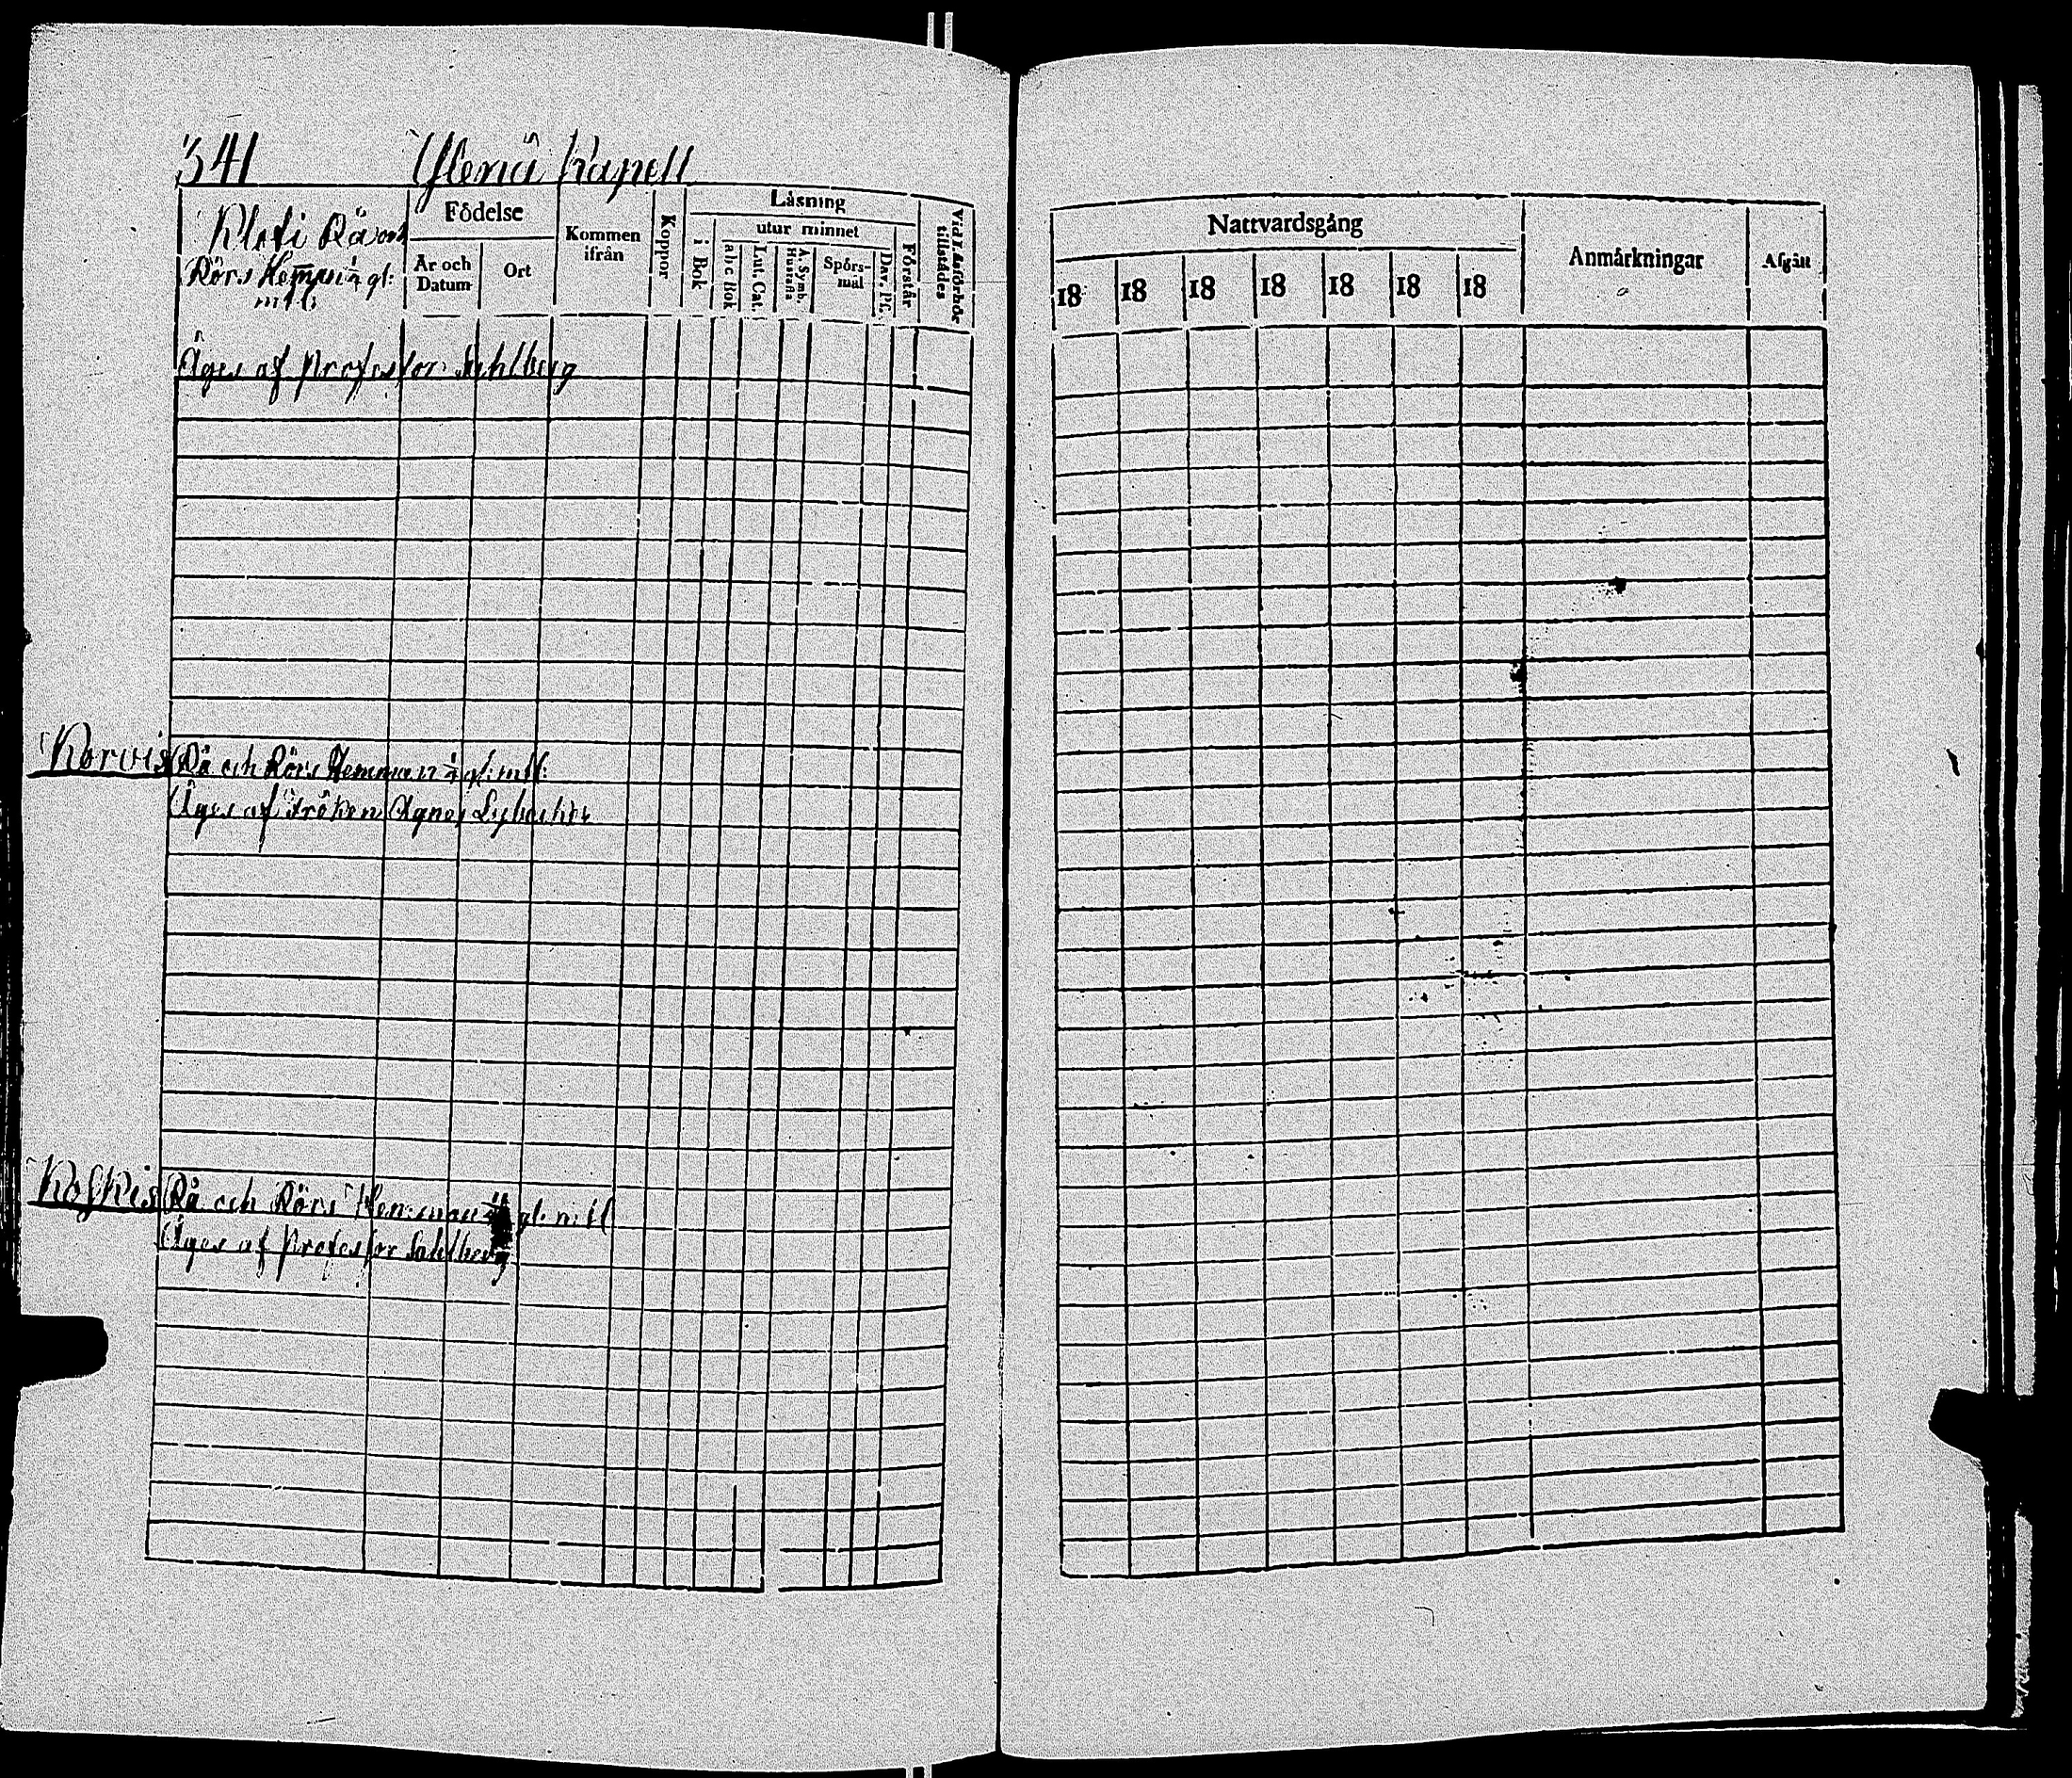 341 Yläneå Kapell
Kleti Rå och
Rörs Hemman ¼ gl:
mtl.
Födelse
År och Datum
Ort
Kommen ifrån
Koppor
Låsning
i Bok
utur minnet
abc Bok
Lut. Cat.
A. Symb. Hustafla
Spörsmål
Dav. Ps.
Förstår
Vid Låsförhör tillstådes
Åges af Professor Sahlberg
Korvis Rå och Rörs Hemman ¼ gl: mtl:
Åges af Fröken Agnes Lybecker
Koskis Rå och Rörs Hemman gl: mtl
Åges af Professor Sahlberg
Nattvardsgång
18 18 18 18 18 18 18
Anmårkningar
Afgått